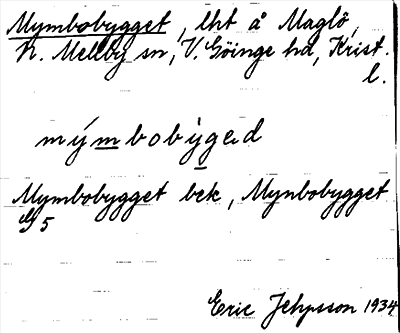 Mymbobygget, lht å Maglö,
N. Mellby sn, V. Göinge hd, Krist.
l.
mýmbobỳged
Mymbobygget bek, Mynbobygget
G 5
Eric Jehpsson 1934